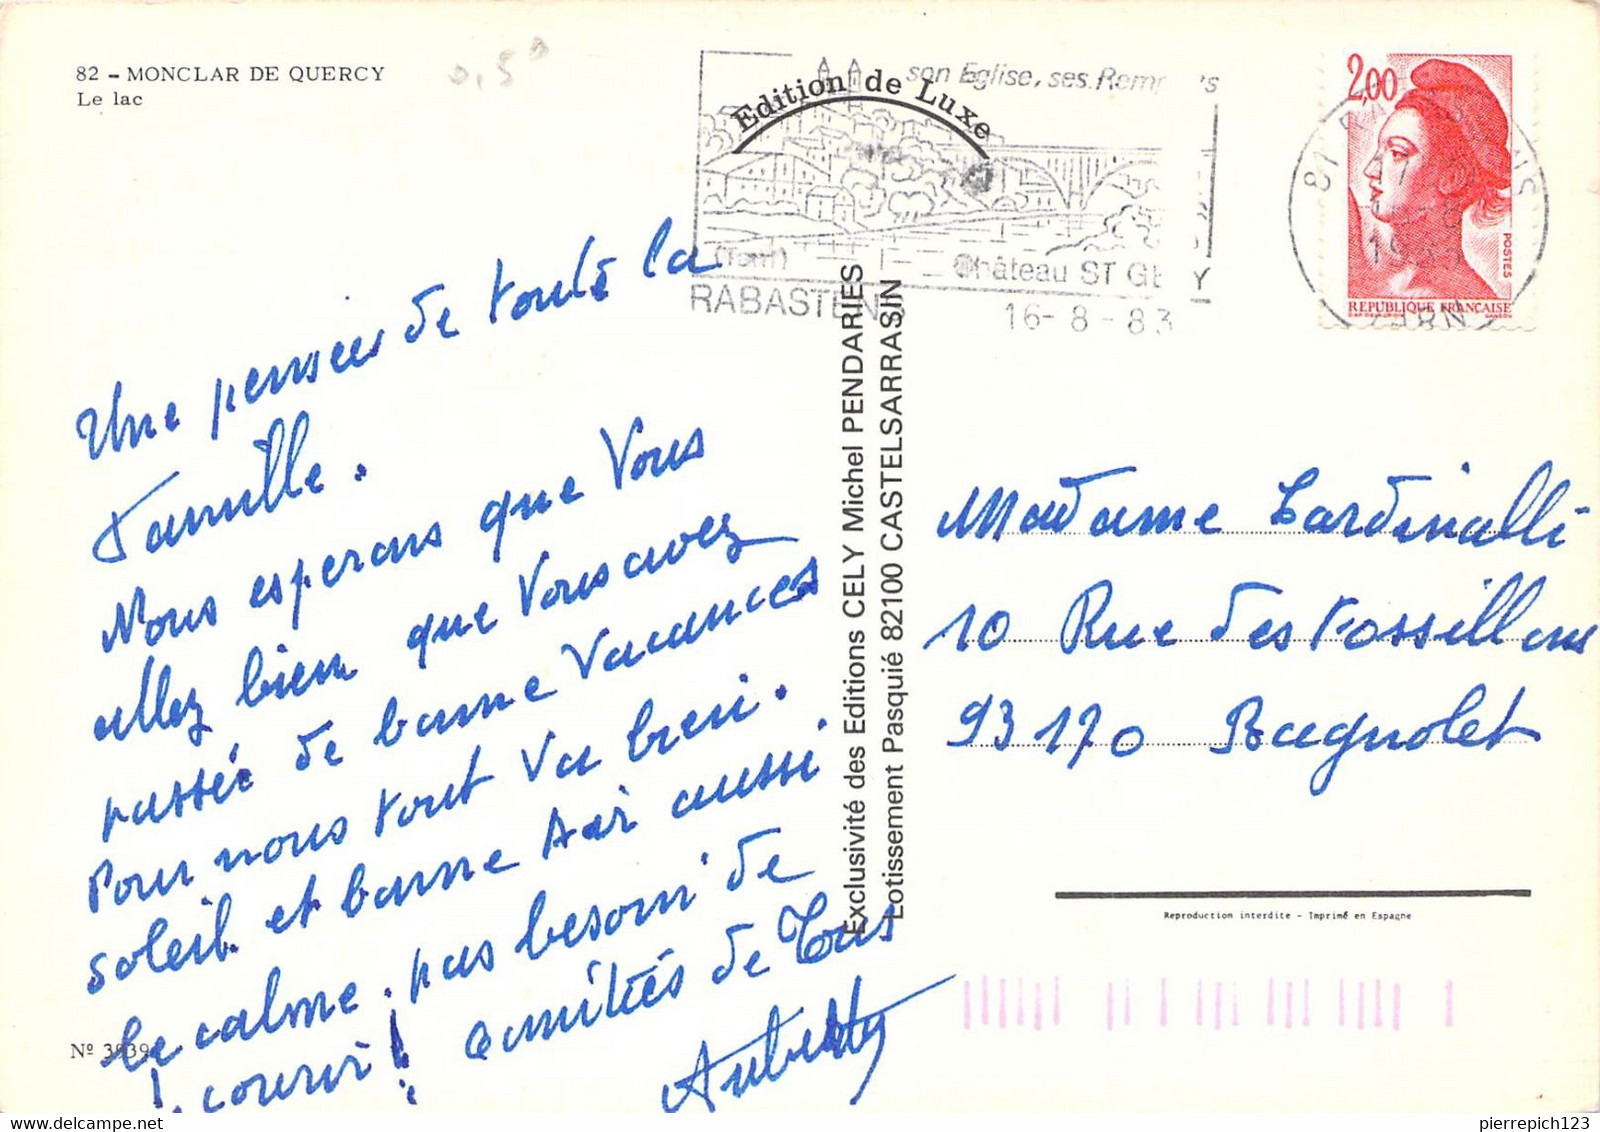 82 - MONCLAR DE QUERCY
Le lac
0,50
Edition de Luxe
son Eglise, ses Remparts
(Tarn)
Château ST GERY
RABASTENS
16-8-83
2,00
POSTES
REPUBLIQUE FRANÇAISE
81 RABASTENS
TARN
Une pensées de toute la
Famille.
Nous esperons que Vous
allez bien que Vous avez
passée de bonne Vacances
Pour nous tout Va bien.
soleil et bonne Air aussi.
le calme. pas besoin de
courir! amitiés de Tous
Exclusivité des Editions CELY Michel PENDARIES
Lotissement Pasquié 82100 CASTELSARRASIN
Madame Lardinalli
10 Rue des Fossillons
93170 Bagnolet
Reproduction interdite - Imprimé en Espagne
Nº 3939
pierrepich123